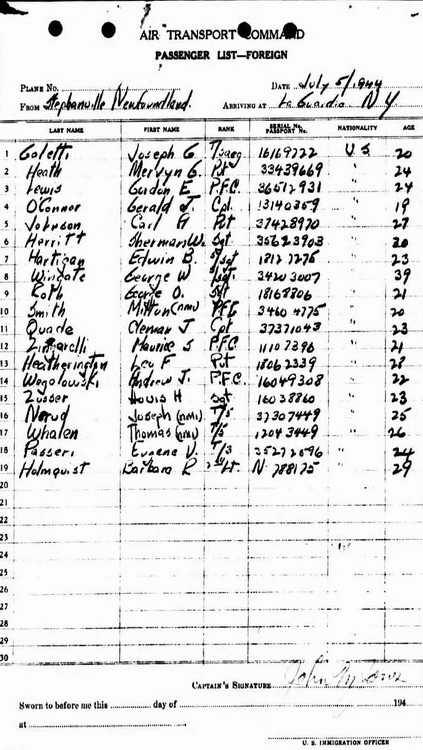 AIR TRANSPORT COMMAND
PASSENGER LIST—FOREIGN
PLANE NO. DATE July 5, 1944
FROM Stephanville Newfoundland. ARRIVING AT La Guardia N Y
LAST NAME FIRST NAME RANK SERIAL NO. PASSPORT NO. NATIONALITY AGE
1 Coletti Joseph G. 16169722 U.S. 20
2 Heath Mervyn G. Pvt 33439669 " 24
3 Lewis Gordon E. P.F.C. 36512931 " 24
4 O'Connor Gerald J. Cpl. 13140359 " 19
5 Johnson Carl A Pvt 37428970 " 27
6 Herritt Sherman W. Sgt 35623903 " 20
7 Hartigan Edwin B. S/sgt " 23
8 Wingate George W 34203007 " 39
9 Roth George O. Sgt 18168806 " 21
10 Smith Milton (nmi) PFC 34604775 " 20
11 Quade Cleman J Cpl 37371043 " 23
12 Maurice S P.F.C 11107396 " 21
13 Heatherington Leo F Pvt 18062339 " 28
14 Wegolowski Andrew J. P.F.C. 16049308 " 22
15 Zusser Louis H Sgt 16038860 " 23
16 Nerud Joseph (nmi) T/5 37307449 " 25
17 Whalen Thomas (nmi) T/5 12043449 " 26
18 Passeri Eugene V. T/3 35272696 " 24
19 Holmquist Barbara R 2nd Lt. N 788175 " 29
20
21
22
23
24
25
26
27
28
29
30
CAPTAIN'S SIGNATURE John
Sworn to before me this day of 194
at
U. S. IMMIGRATION OFFICER